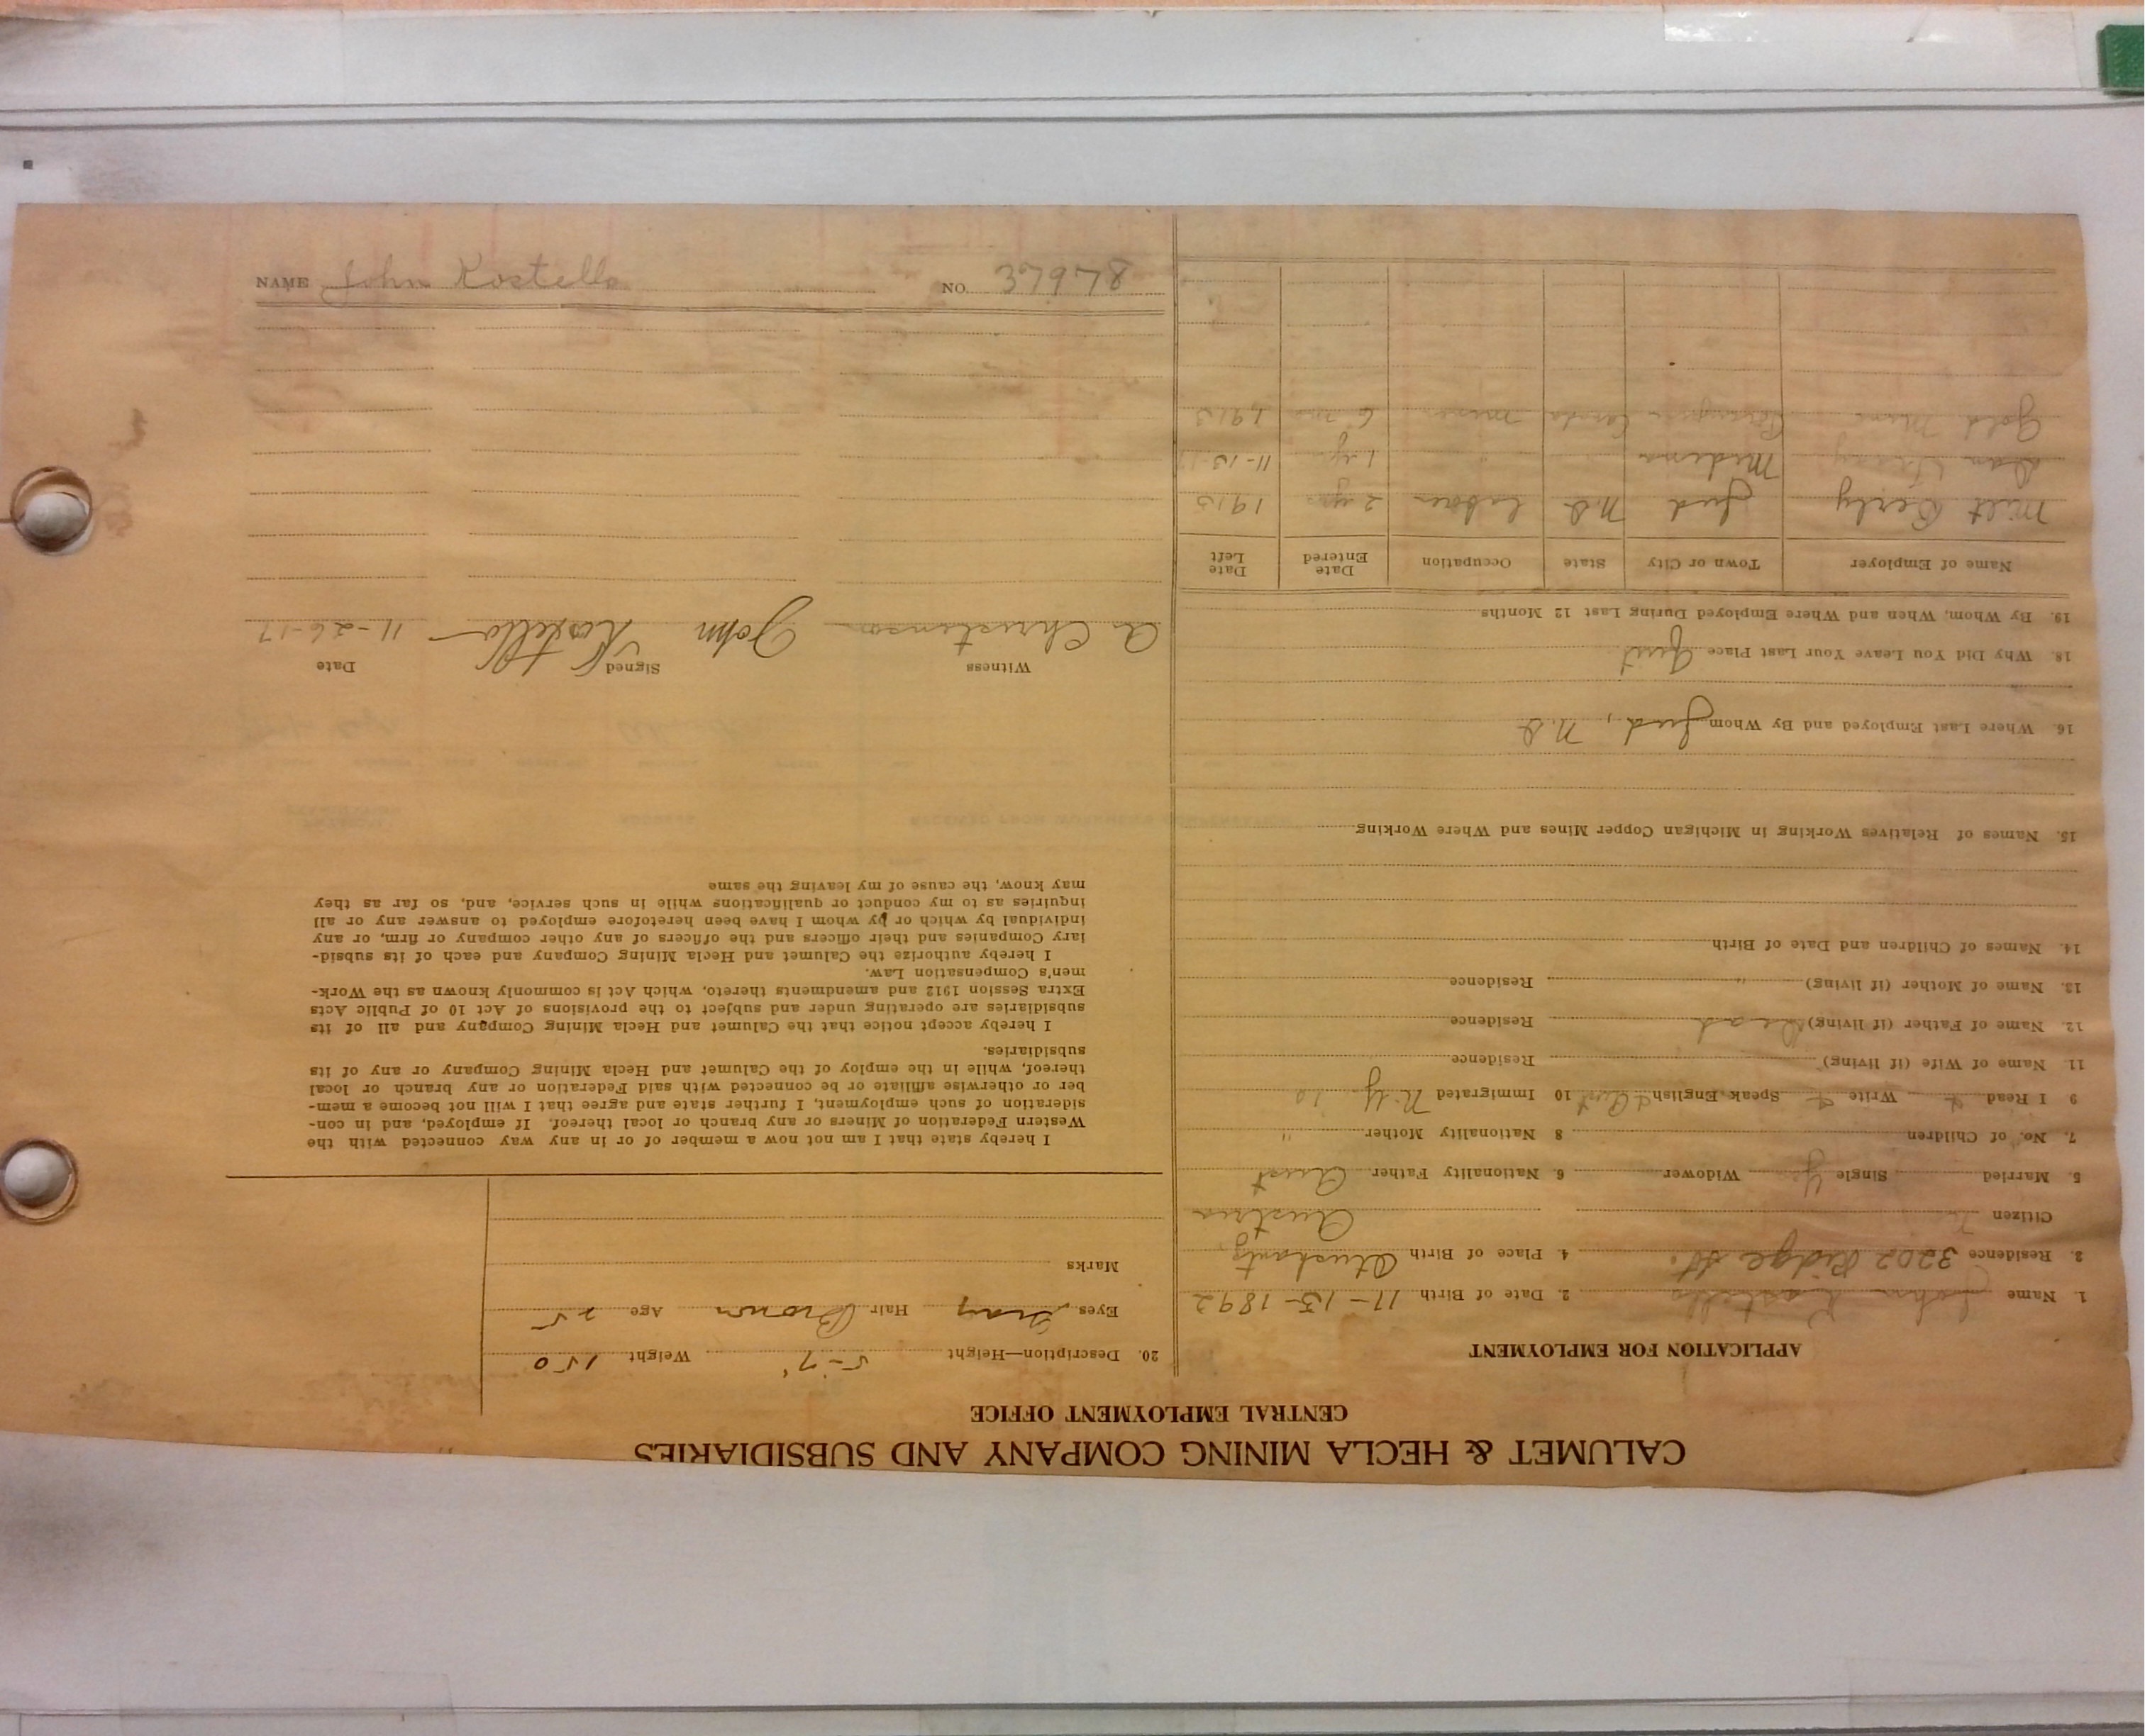 CALUMET & HECLA MINING COMPANY AND SUBSIDIARIES
CENTRAL EMPLOYMENT OFFICE
APPLICATION FOR EMPLOYMENT
1. Name John Kostello 2. Date of Birth 11-13-1892
3. Residence 3202 Ridge St. 4. Place of Birth
Citizen Austria
5. Married Single Yes Widower 6. Nationality Father Aust
7. No. of Children 8 Nationality Mother "
9 I Read Write Speak English 10 Immigrated N.Y.
11. Name of Wife (if living) Residence
12. Name of Father (if living) Dead Residence
13. Name of Mother (if living) " Residence
14. Names of Children and Date of Birth
15. Names of Relatives Working in Michigan Copper Mines and Where Working
16. Where Last Employed and By Whom Jud, N.D.
18. Why Did You Leave Your Last Place Quit
19. By Whom, When and Where Employed During Last 12 Months
Name of Employer Town or City State Occupation Date Entered Date Left
Milt Jud N.D. Labor 2 yrs 1915
Dan Medina " 1 yr 11-13-
Gold Mine Canada miner 6 mo 1913
20. Description—Height 5-7" Weight 150
Eyes Gray Hair Brown Age 25
Marks
I hereby state that I am not now a member of or in any way connected with the
Western Federation of Miners or any branch or local thereof. If employed, and in con-
sideration of such employment, I further state and agree that I will not become a mem-
ber or otherwise affiliate or be connected with said Federation or any branch or local
thereof, while in the employ of the Calumet and Hecla Mining Company or any of its
subsidiaries.
I hereby accept notice that the Calumet and Hecla Mining Company and all of its
subsidiaries are operating under and subject to the provisions of Act 10 of Public Acts
Extra Session 1912 and amendments thereto, which Act is commonly known as the Work-
men's Compensation Law.
I hereby authorize the Calumet and Hecla Mining Company and each of its subsid-
iary Companies and their officers and the officers of any other company or firm, or any
individual by which or by whom I have been heretofore employed to answer any or all
inquiries as to my conduct or qualifications while in such service, and, so far as they
may know, the cause of my leaving the same
Witness Signed Date
A Christenson John Kostello 11-26-17
NAME John Kostello NO. 37978